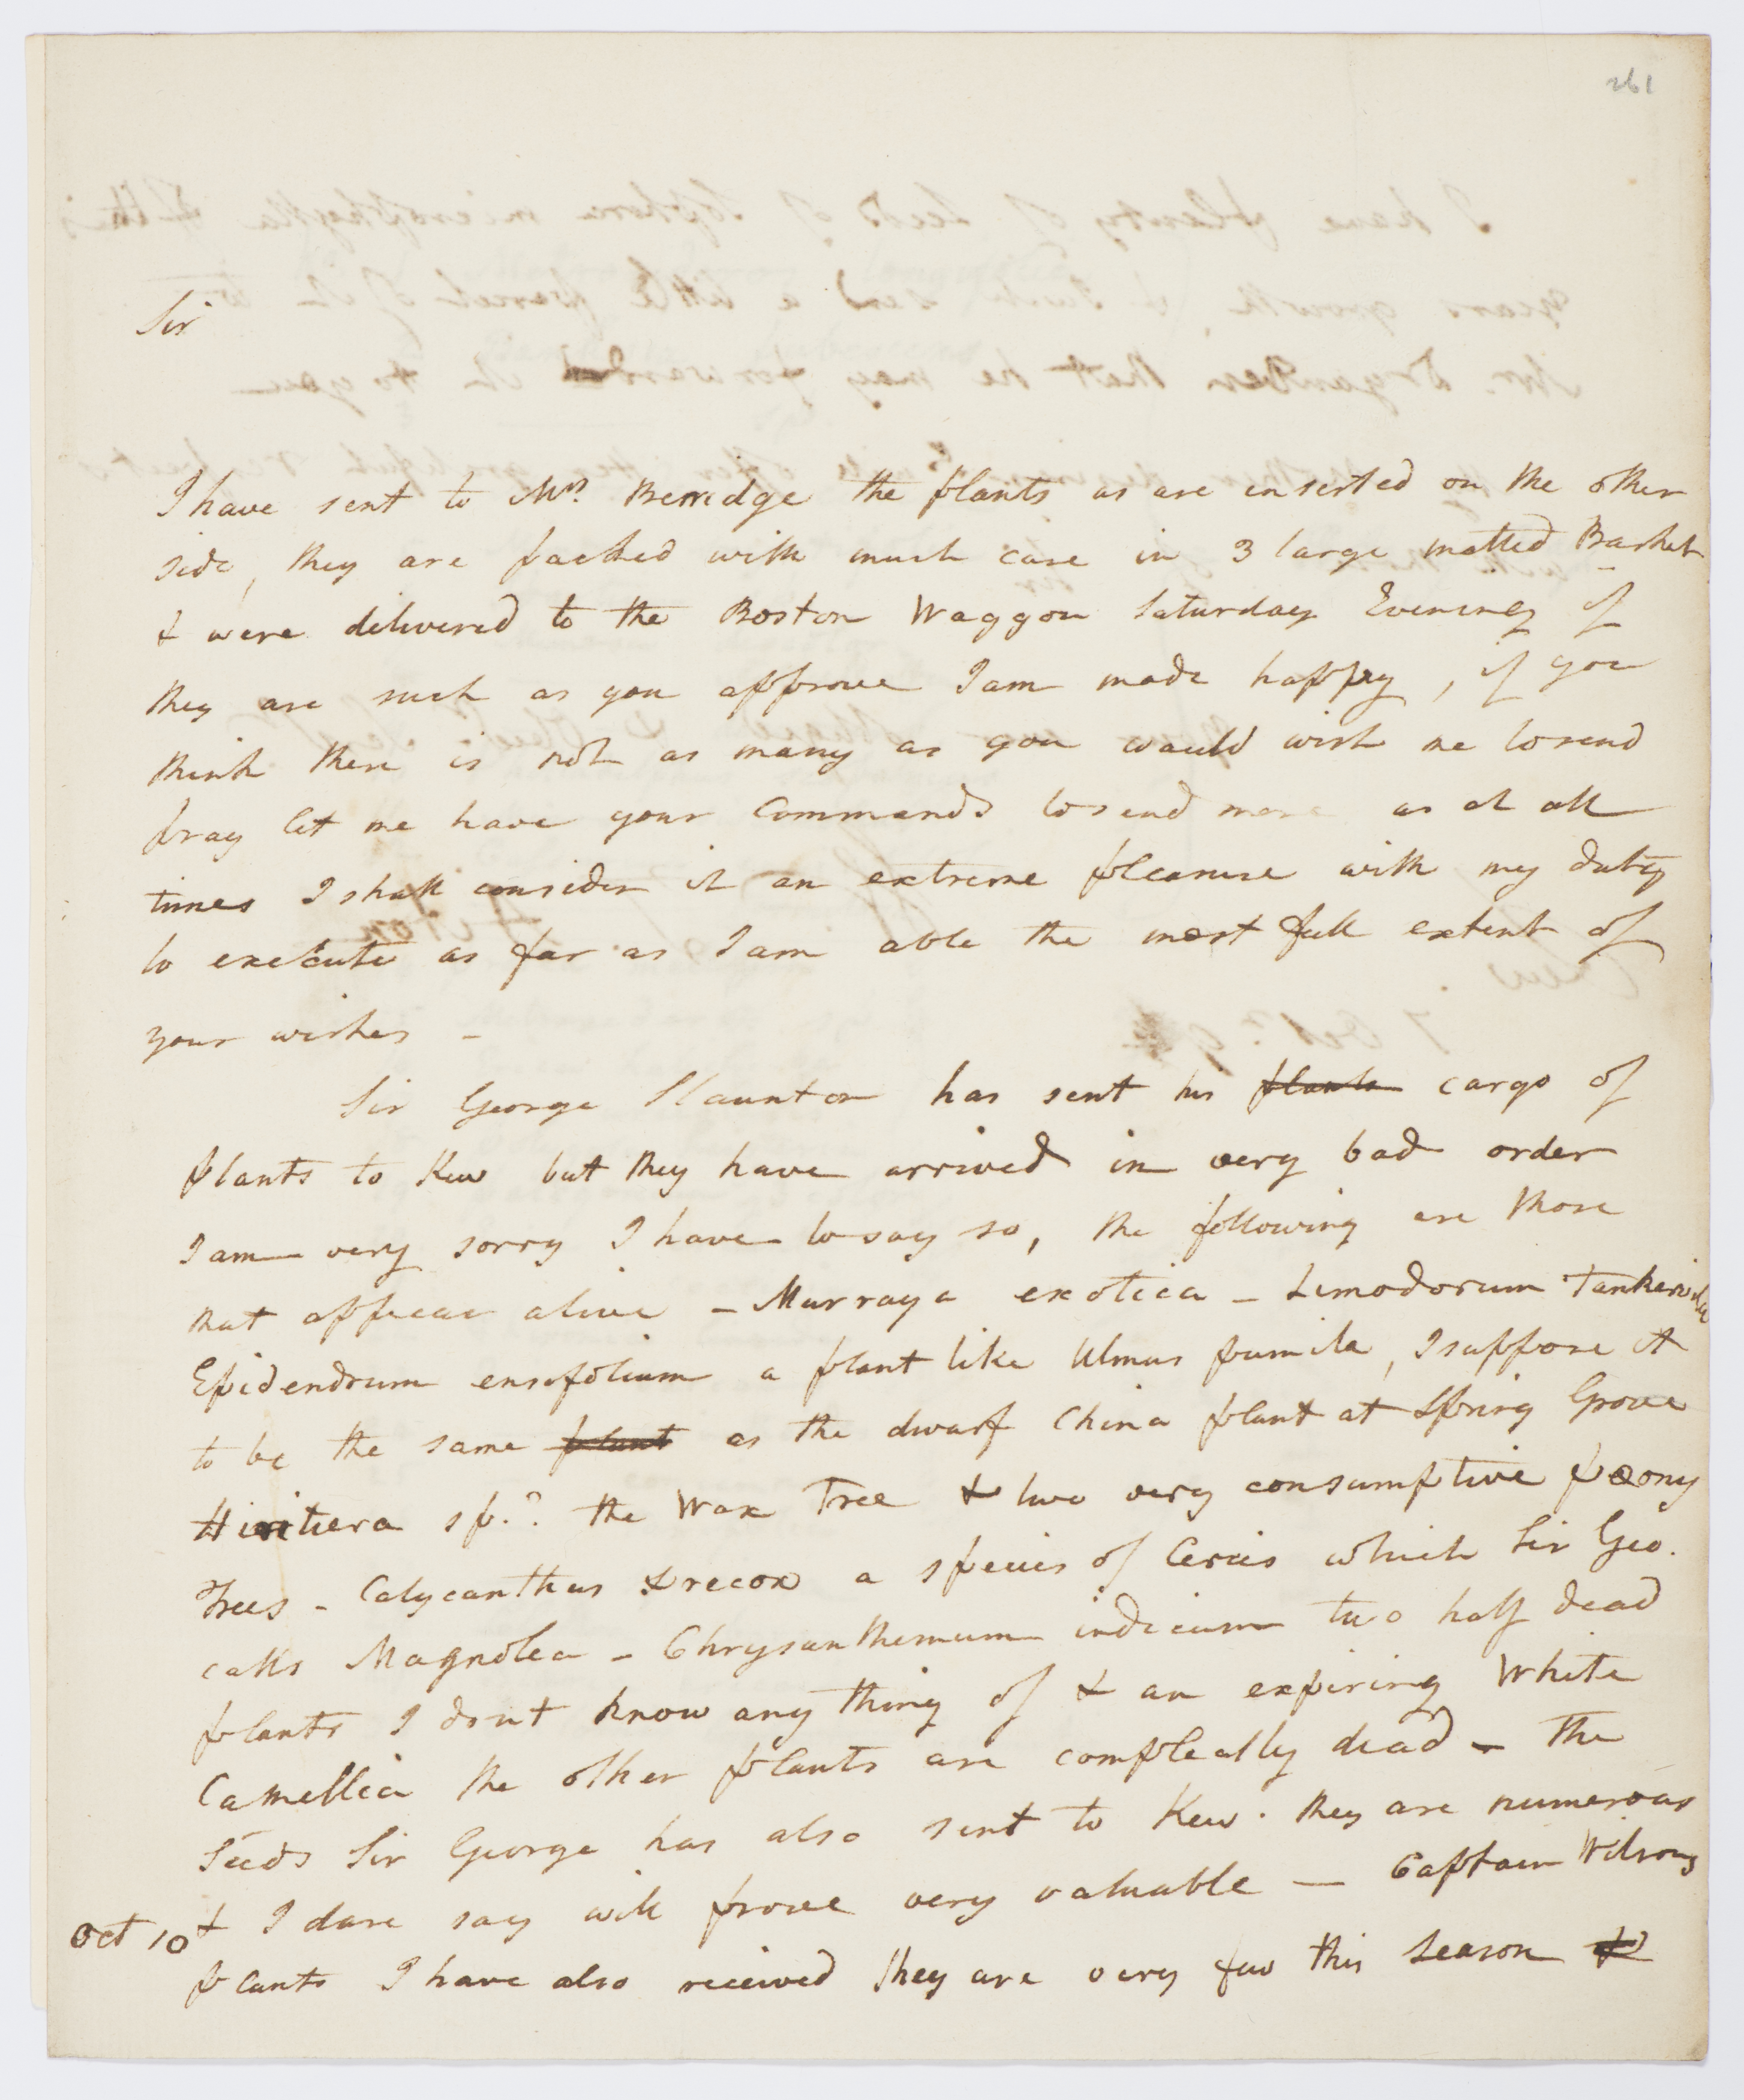 261
Sir
I have sent to Mrs. Berridge the plants as are inserted on the other
side, they are packed with much care in 3 large matted Basket
& were delivered to the Boston Waggon Saturday Evening if
they are such as you approve I am made happy, if you
think there is not as many as you would wish me to send
pray let me have your Commands to send more as at all
times I shall consider it an extreme pleasure with my duty
to execute as far as I am able the most full extent of
your wishes -
Sir George Staunton has sent his plants cargo of
plants to Kew but they have arrived in very bad order
I am very sorry I have to say so, the following are those
that appear alive - Murraya exotica - Limodorum Tankervilliae
Epidendrum ensifolium a plant like Ulmus pumila, I suppose it
to be the same plant as the dwarf China plant at Spring Grove
sp.? the Wax Tree & two very consumptive pæony
Trees - Calycanthus præcox a species of Cercis which Sir Geo.
calls Magnolea - Chrysanthemum indicum two half dead
plants I dont know any thing of & an expiring White
Camellia the other plants are compleatly dead - The
Seeds Sir George has also sent to Kew. they are numerous
& I dare say will prove very valuable — Captain Wilsons
Oct 10
plants I have also received they are very few this Season